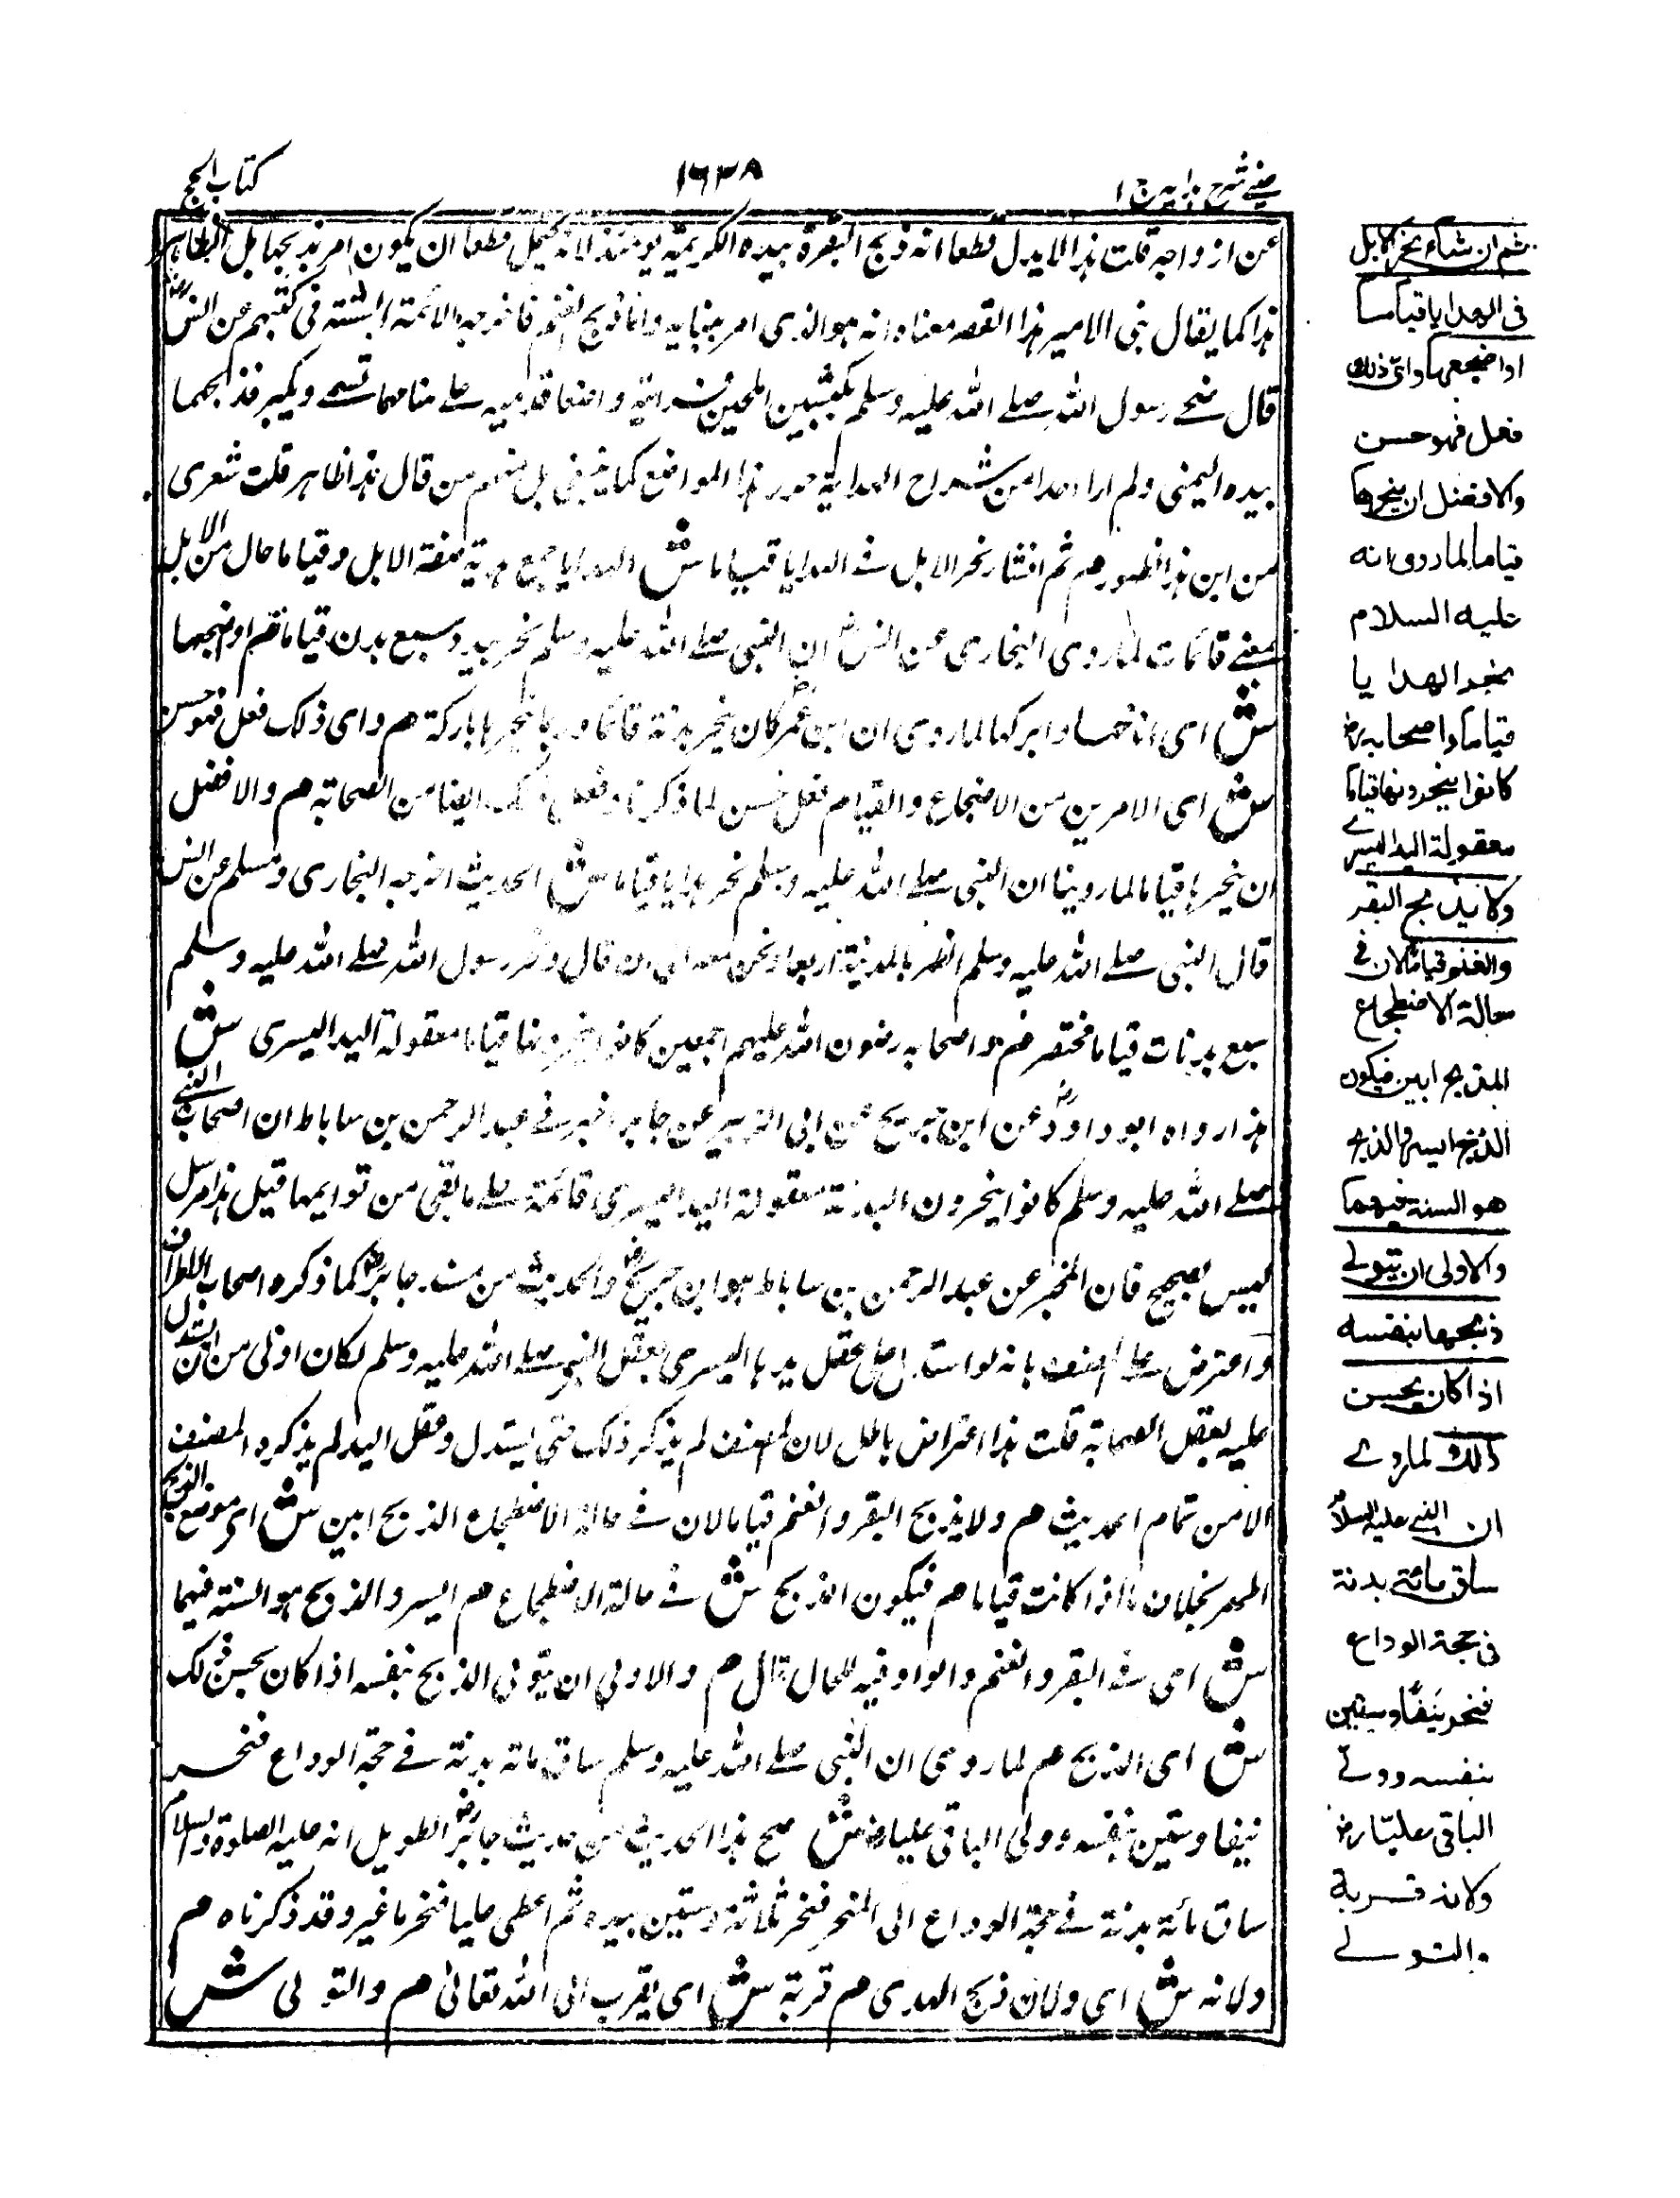 عيني شرح هدايه ج ١
١٦٣٨
كتاب الحج
عن ازواجه قلت هذا لا يدل قطعا انه ذبح البقرة بيده الكريمة يومئذ لانه يحتمل قطعا ان يكون امر بذبحها بل الظاهر
هذا كما يقال بنى الامير هذا القصر معناه انه هو الذى امر ببنايه واما ذبح الغنم فاخرجه الائمة الستة فى كتبهم عن انس رض
قال ضحى رسول الله صلى الله عليه وسلم بكبشين املحين فرأيته واضعا قدميه على صفاحهما يسمى ويكبر فذبحهما
بيده اليمنى ولم ار احدا من شراح الهداية حرر هذا المواضع كما ينبغى بل منهم من قال هذا ظاهر قلت شعرى
من اين هذا الظهور م ثم ان شاء نحر الابل فى الهدايا قياما ش الهدايا جمع هدية صفة الابل وقياما حال من الابل
بمعنى قائمات لما روى البخارى عن انس رض ان النبى صلى الله عليه وسلم نحر بيده سبع بدن قياما م او اضجعها
ش اى اناخها وابركها لما روى ان ابن عمر رض كان ينحر بدنة قائما وربما نحرها باركة م واى ذلك فعل فهو حسن
ش اى الامرين من الاضجاع والقيام فعل حسن لما ذكرنا وفعل ذلك ايضا من الصحابة م والافضل
ان ينحرها قياما لما روينا ان النبى صلى الله عليه وسلم نحر هدايا قياما ش الحديث اخرجه البخارى ومسلم عن انس
قال النبى صلى الله عليه وسلم الظهر بالمدينة اربعا ونحن معه الى ان قال ونحر رسول الله صلى الله عليه وسلم
سبع بدنات قياما مختصر م واصحابه رضوان الله عليهم اجمعين كانوا ينحرونها قياما معقولة اليد اليسرى ش
هذا رواه ابو داود رض عن ابن جريج عن ابى الزبير عن جابر اخبرنى عبد الرحمن بن ساباط ان اصحاب النبى
صلى الله عليه وسلم كانوا ينحرون البدنة معقولة اليد اليسرى قائمة على ما بقى من قوايمها قيل هذا مرسل
ليس بصحيح فان المخبر عن عبد الرحمن بن ساباط هو ابن جريج رض والحديث من مسند جابر رض كما ذكره اصحاب الاطراف
واعترض على المصنف بانه لو استدل على عقل يدها اليسرى بعقل النبى صلى الله عليه وسلم لكان اولى من ان يستدل
عليه بعقل الصحابة قلت هذا اعتراض باطل لان المصنف لم يذكر ذلك حتى يستدل وعقل اليد لم يذكره المصنف
الا من تمام الحديث م ولا يذبح البقر والغنم قياما لان فى حالة الاضطجاع الذبح ابين ش اى موضع الذبح
اظهر بخلاف ما اذا كانت قياما م فيكون الذبح ش فى حالة الاضطجاع م ايسر والذبح هو السنة فيهما
ش اى فى البقر والغنم والواو فيه للحال قال م والاولى ان يتولى الذبح بنفسه اذا كان يحسن ذلك
ش اى الذبح م لما روى ان النبى صلى الله عليه وسلم ساق مائة بدنة فى حجة الوداع فنحر
نيفا وستين بنفسه وولى الباقى عليا رض ش صح هذا الحديث من حديث جابر رض الطويل انه عليه الصلوة والسلام
ساق مائة بدنة فى حجة الوداع الى المنحر فنحر ثلاثة وستين بيده ثم اعطى عليا فنحر ما غبر وقد ذكرناه م
ولانه ش اى ولان ذبح الهدى م قربة ش اى تقرب الى الله تعالى م والتولى ش
ثم ان شاء نحر الابل
فى الهدايا قياما
او اضجعها واى ذلك
فعل فهو حسن
والافضل ان ينحرها
قياما لما روى انه
عليه السلام
نحر الهدايا
قياما واصحابه رض
كانوا ينحرونها قياما
معقولة اليد اليسرى
ولا يذبح البقر
والغنم قياما لان فى
حالة الاضطجاع
المذبح ابين فيكون
الذبح ايسر والذبح
هو السنة فيهما
والاولى ان يتولى
ذبحها بنفسه
اذا كان يحسن
ذلك لما روى
ان النبى عليه السلام
ساق مائة بدنة
فى حجة الوداع
فنحر نيفا وستين
بنفسه وولى
الباقى عليا رض
ولانه قربة
والتولى